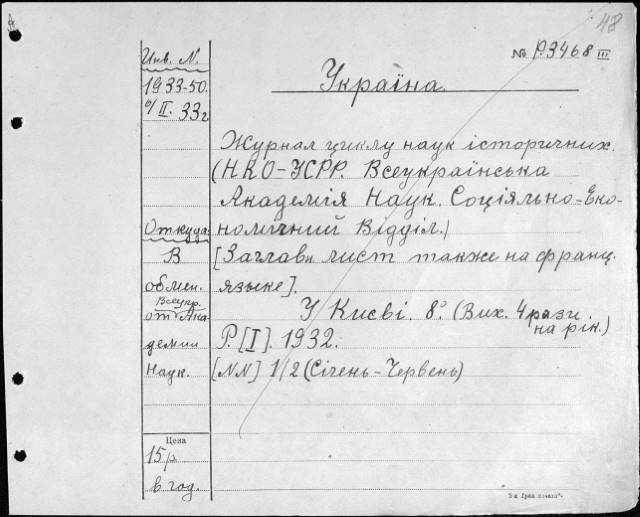 48
№ P.3468 III
Инв. N.
1933-50.
6/II. 33 г
Україна.
Журнал циклу наук історичних.
(НКО-УСРР. Всеукраїнська
Академія Наук. Соціяльно-Еко-
номічний Відділ.)
[Заглавн лист также на франц.
языке].
У Києві. 8°. (Вих. 4 рази
на рік.)
Р. [I]. 1932.
[NN] 1/2 (Січень-Червень)
Откуда:
В
обмен.
Всеукр.
от Ака-
демии
Наук.
Цена
15 р.
в год.